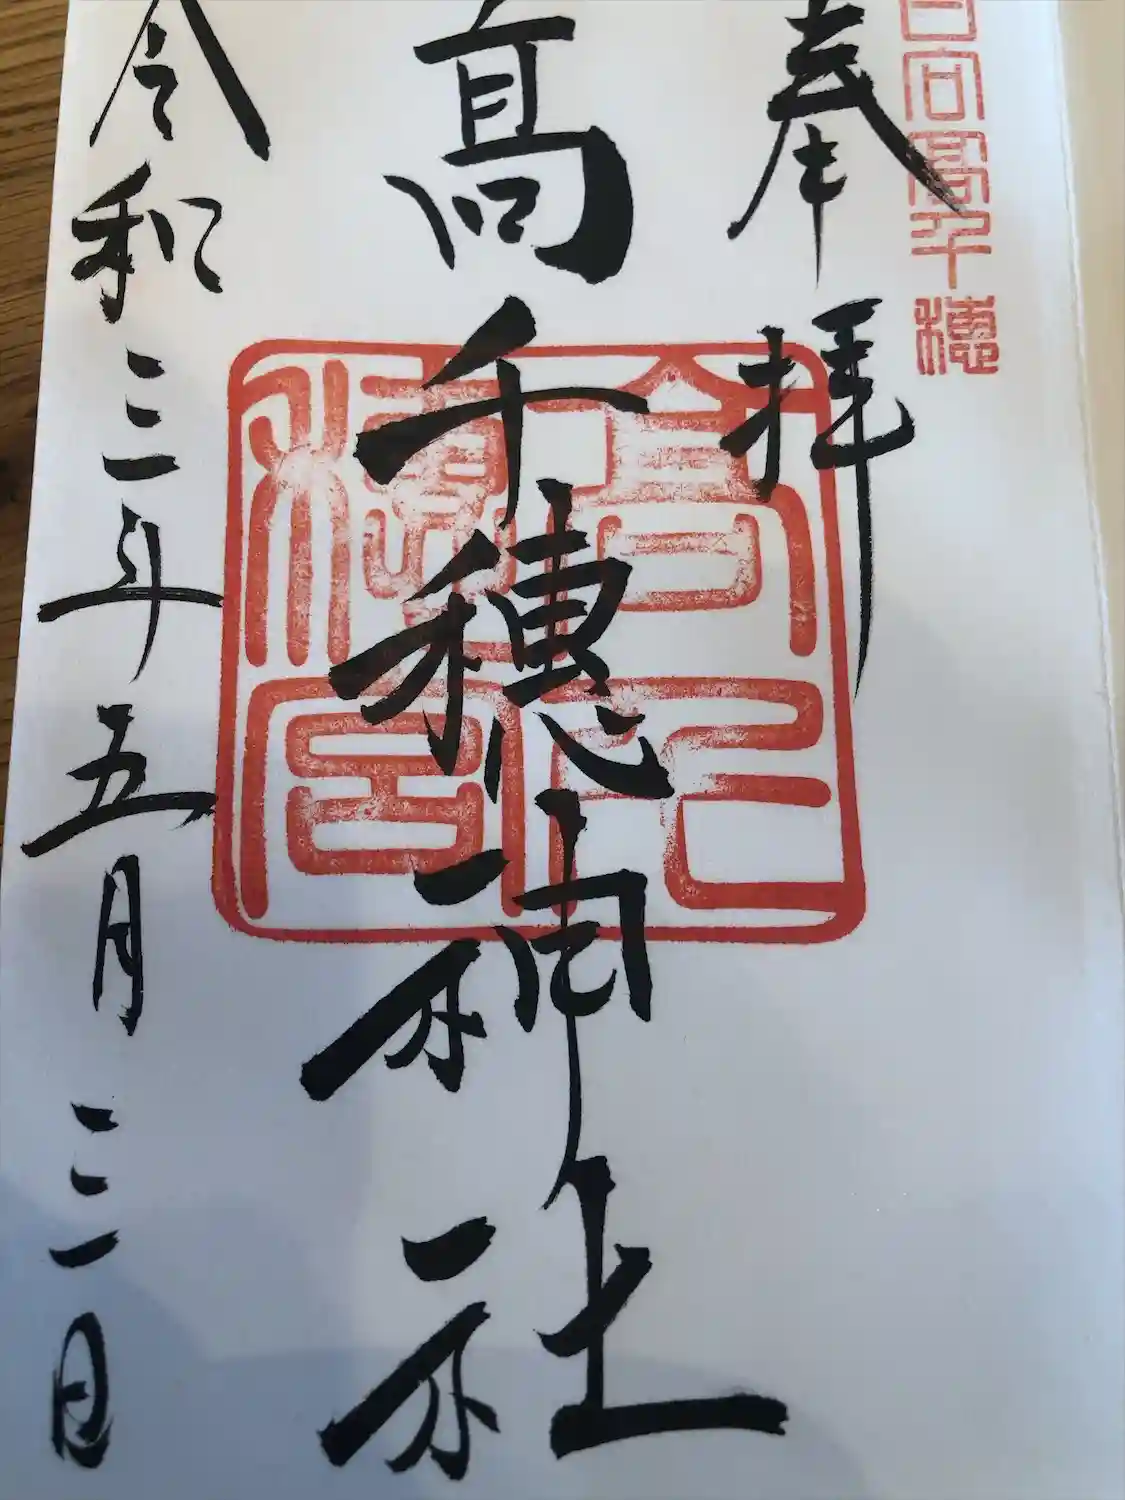 日向高千穂
奉拝
高千穂神社
高千穂宮
令和三年五月三日